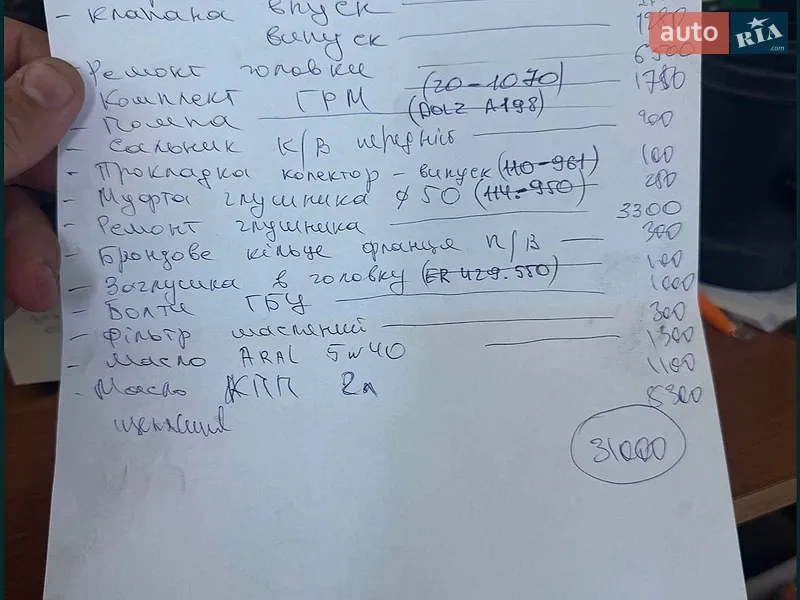 - клапана впуск
випуск
1980
- Ремонт головки
6500
- Комплект ГРМ (20-1070)
1780
- Помпа (DOLZ A198)
900
- Сальник к/в передній
100
- Прокладка колектор - випуск (110-961)
280
- Муфта глушника ф 50 (114-950)
3300
- Ремонт глушника
300
- Брондове кільце фланця п/в
100
- Заглушка в головку (ER 429.550)
1000
- Болти ГБЦ
300
- Фільтр масляний
1300
- Масло ARAL 5w40
1100
- Масло КПП 2л
8300
31000
auto RIA .com